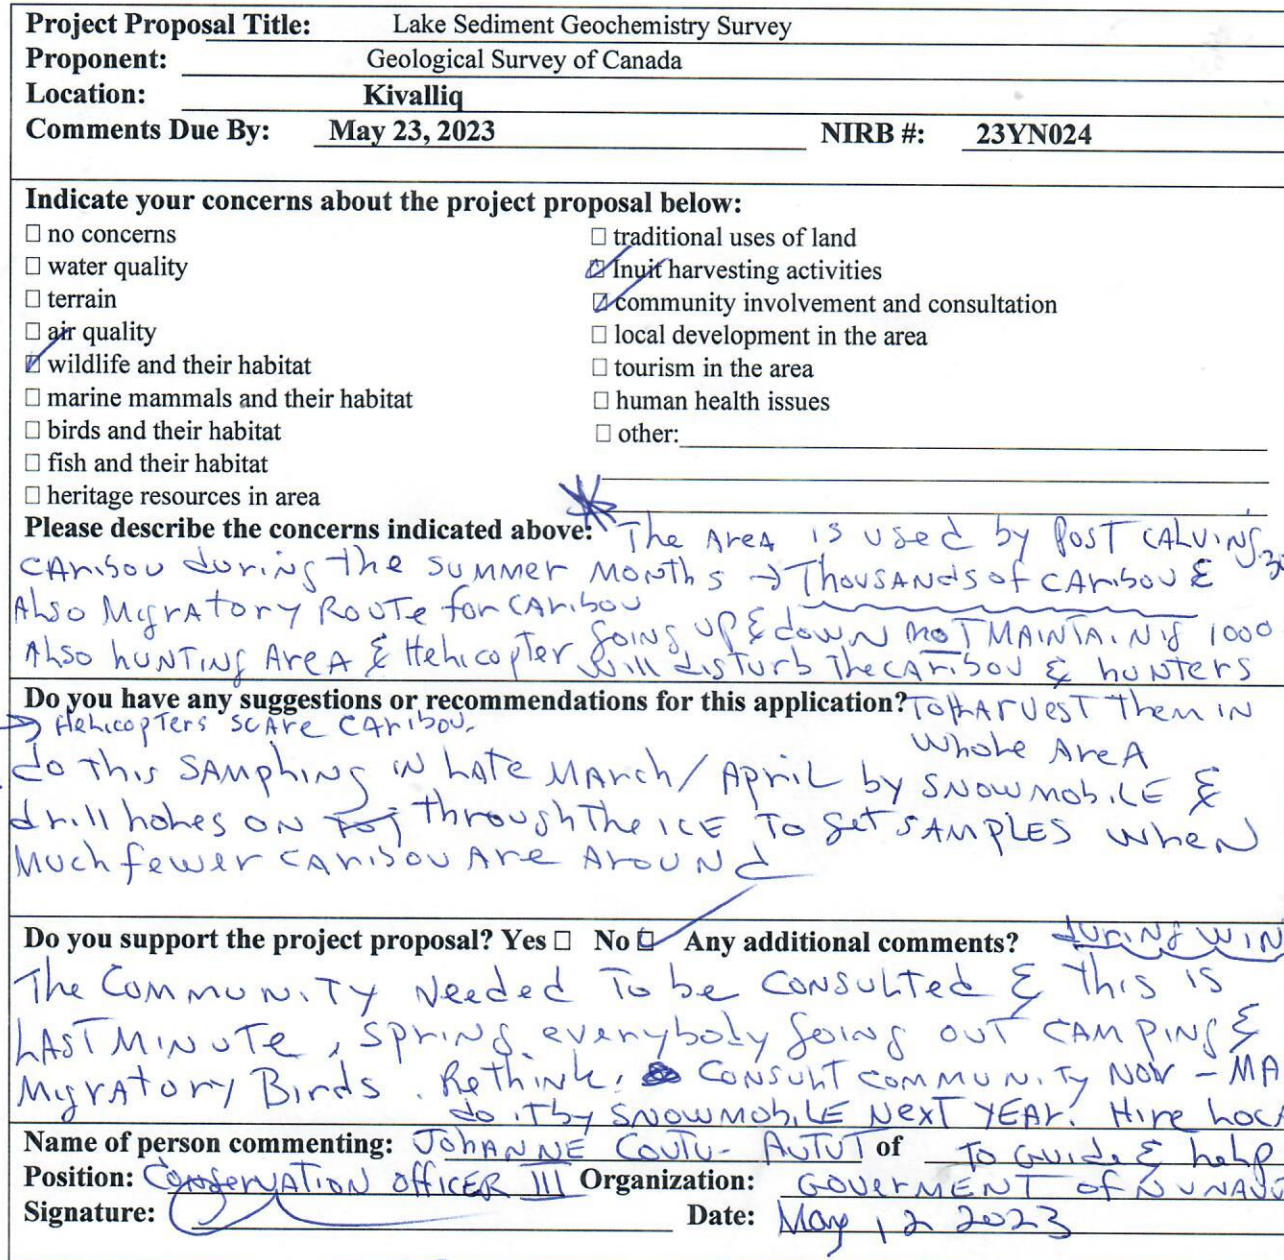 Project Proposal Title: Lake Sediment Geochemistry Survey
Proponent: Geological Survey of Canada
Location: Kivalliq
Comments Due By: May 23, 2023 NIRB #: 23YN024
Indicate your concerns about the project proposal below:
☐ no concerns
☐ water quality
☐ terrain
☐ air quality
☑ wildlife and their habitat
☐ marine mammals and their habitat
☐ birds and their habitat
☐ fish and their habitat
☐ heritage resources in area
☐ traditional uses of land
☑ Inuit harvesting activities
☑ community involvement and consultation
☐ local development in the area
☐ tourism in the area
☐ human health issues
☐ other:
Please describe the concerns indicated above: The Area is used by Post CALVING
CAribou during the summer months → Thousands of CAribou &
Also Migratory Route for CAribou
Also hunting Area & Helicopter going up & down not MAINTAiNig 1000
will disturb the caribou & hunters
Do you have any suggestions or recommendations for this application? To HArvest Them in
whole Area
→ Helicopters scare caribou.
do this SAMpling in Late March/April by snowmobile &
drill holes on through the ice To get SAMPLES when
Much fewer caribou Are Around
Do you support the project proposal? Yes ☐ No ☑ Any additional comments? during WIN
The Community Needed To be Consulted & this is
LAST Minute, spring everybody going out CAMPing &
Migratory Birds. Rethink. Consult community Now - MA
do it by snowmobile Next YEAr. Hire LocA
Name of person commenting: JohANNE Coutu-AuTuT of To Guide & help
Position: Conservation officer III Organization: GoverMENT of NuNAvu
Signature: Date: May 12 2023